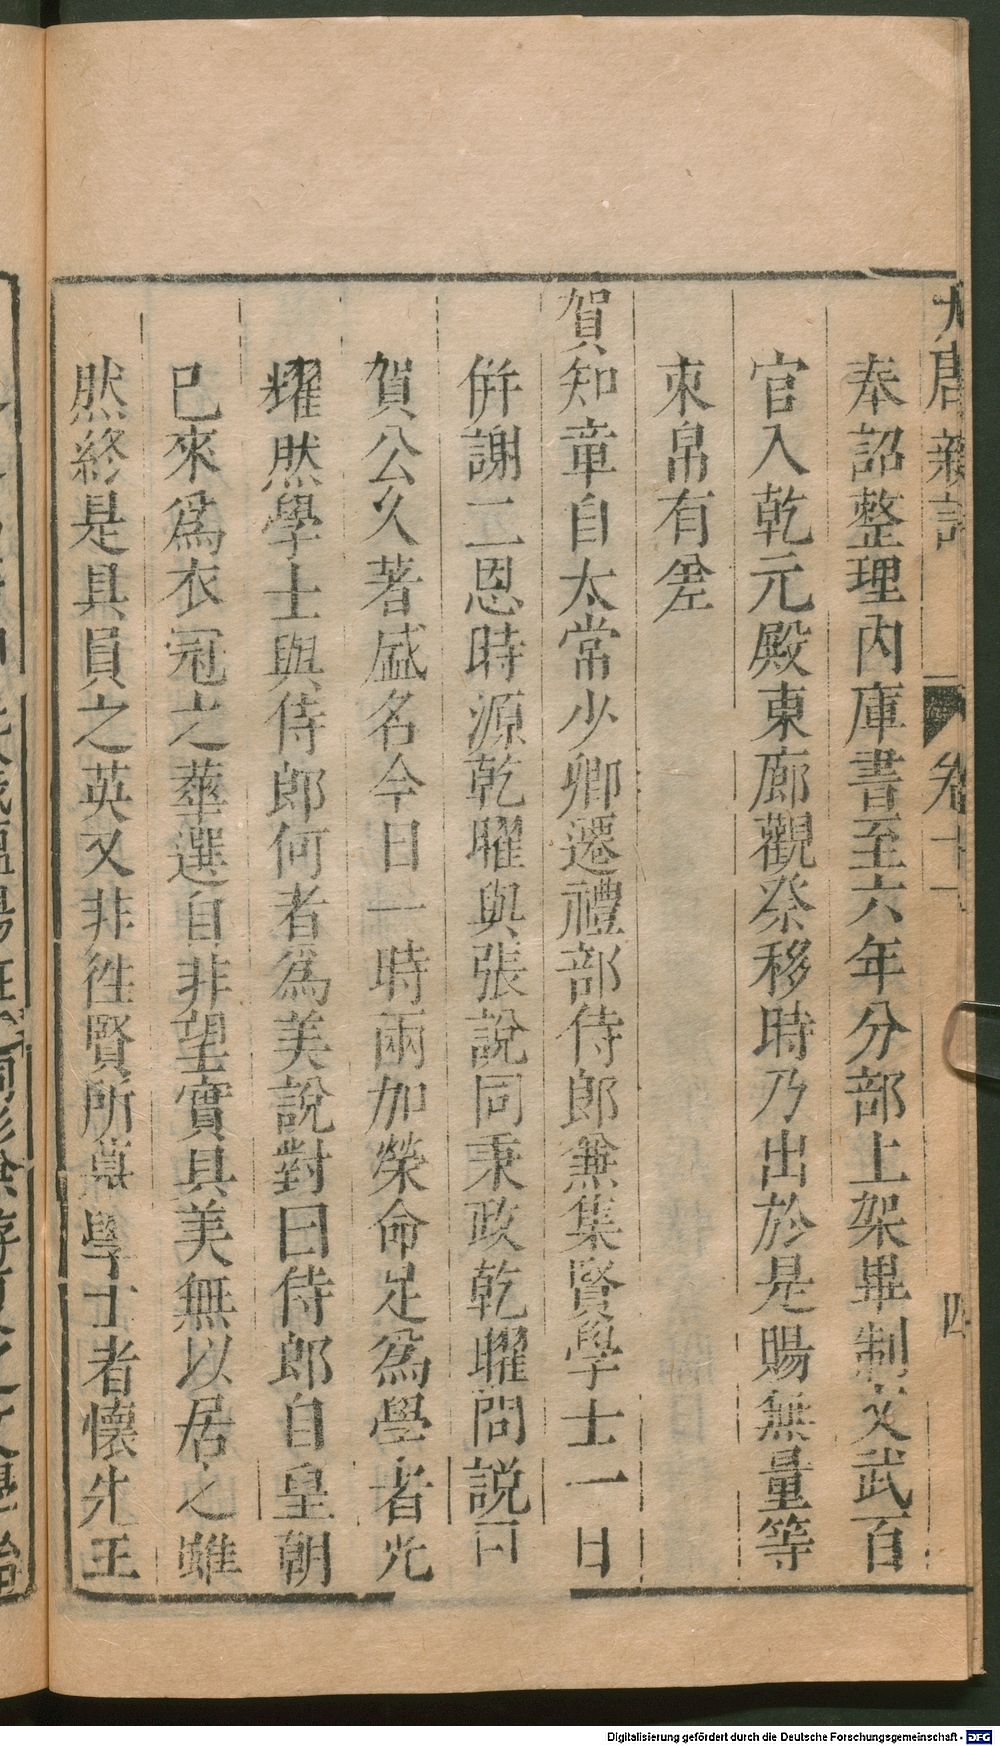 大唐新語 卷十一 四
奉詔整理內庫書至六年分部上架畢制文武百
官入乾元殿東廊觀察移時乃出於是賜無量等
束帛有差
賀知章自太常少卿遷禮部侍郎兼集賢學士一日
併謝二恩時源乾曜與張說同秉政乾曜問說曰
賀公久著盛名今日一時兩加榮命足爲學者光
耀然學士與侍郎何者爲美說對曰侍郎自皇朝
已來爲衣冠之華選自非望實具美無以居之雖
然終是具員之英又非徃賢所慕學士者懷先王
Digitalisierung gefördert durch die Deutsche Forschungsgemeinschaft - DFG